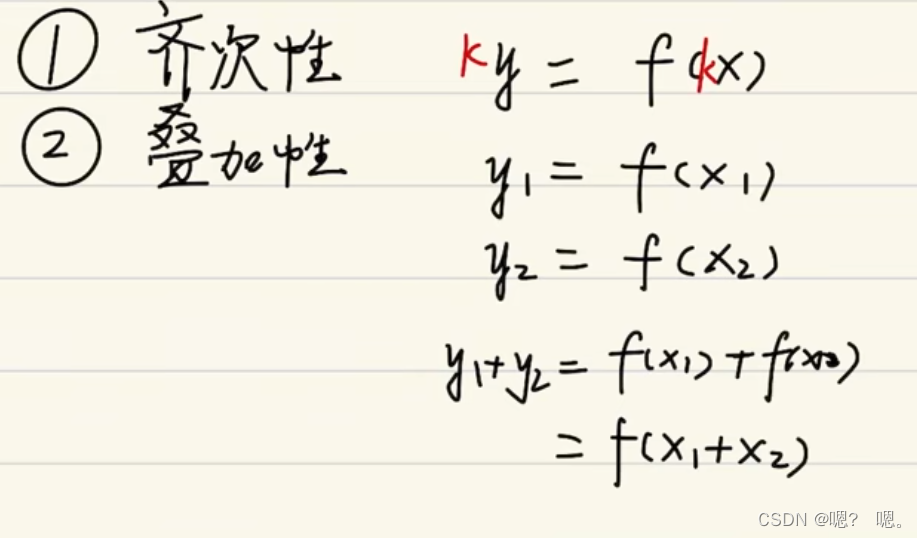 ① 齐次性 ky = f(kx)
② 叠加性 y₁ = f(x₁)
y₂ = f(x₂)
y₁+y₂ = f(x₁) + f(x₂)
= f(x₁+x₂)
CSDN @嗯? 嗯。